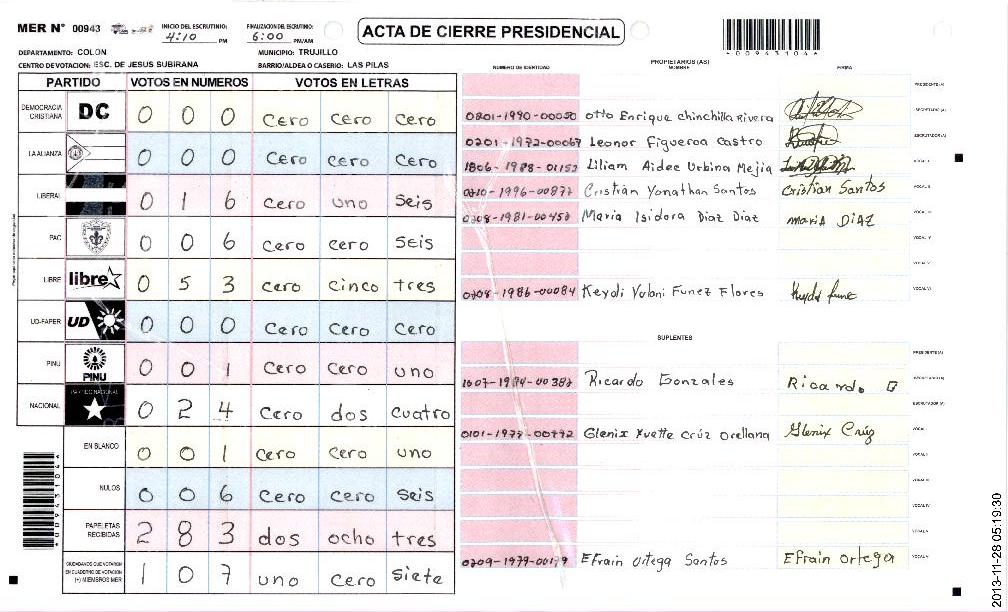 MER N° 00943
INICIO DEL ESCRUTINIO: 4:10 PM
FINALIZACION DEL ESCRUTINIO: 6:00 PM/AM
ACTA DE CIERRE PRESIDENCIAL
*00943104*
DEPARTAMENTO: COLON
MUNICIPIO: TRUJILLO
CENTRO DE VOTACION: ESC. DE JESUS SUBIRANA
BARRIO/ALDEA O CASERIO: LAS PILAS
PARTIDO VOTOS EN NUMEROS VOTOS EN LETRAS
DEMOCRACIA CRISTIANA DC 0 0 0 cero cero cero
LA ALIANZA 0 0 0 cero cero cero
LIBERAL 0 1 6 cero uno seis
PAC 0 0 6 cero cero seis
LIBRE libre 0 5 3 cero cinco tres
UD-FAPER UD 0 0 0 cero cero cero
PINU PINU 0 0 1 cero cero uno
NACIONAL PARTIDO NACIONAL 0 2 4 cero dos cuatro
EN BLANCO 0 0 1 cero cero uno
NULOS 0 0 6 cero cero seis
PAPELETAS RECIBIDAS 2 8 3 dos ocho tres
CIUDADANOS QUE VOTARON EN CUADERNO DE VOTACION (+) MIEMBROS MER 1 0 7 uno cero siete
*00943104*
NUMERO DE IDENTIDAD PROPIETARIOS (AS) NOMBRE FIRMA
PRESIDENTE(A)
0201-1990-00050 otto Enrique chinchilla Rivera SECRETARIO(A)
0201-1972-00067 Leonor Figueroa Castro ESCRUTADOR(A)
1806-1988-01152 Liliam Aidee Urbina Mejia VOCAL I
0210-1996-00877 Cristian Yonathan Santos Cristian Santos VOCAL II
0208-1981-00450 Maria Isidora Diaz Diaz maria DiAZ VOCAL III
VOCAL IV
VOCAL V
0208-1986-00084 Keydi Yolani Funez Flores Keydi Funez VOCAL VI
SUPLENTES
PRESIDENTE(A)
1007-1984-00382 Ricardo Gonzales Ricardo G SECRETARIO(A)
ESCRUTADOR(A)
0101-1977-00772 Glenix Yvette Crúz Orellana Glenix Crúz VOCAL I
VOCAL II
VOCAL III
VOCAL IV
VOCAL V
0209-1979-00179 Efrain Ortega Santos Efrain Ortega VOCAL VI
2013-11-28 05:19:30